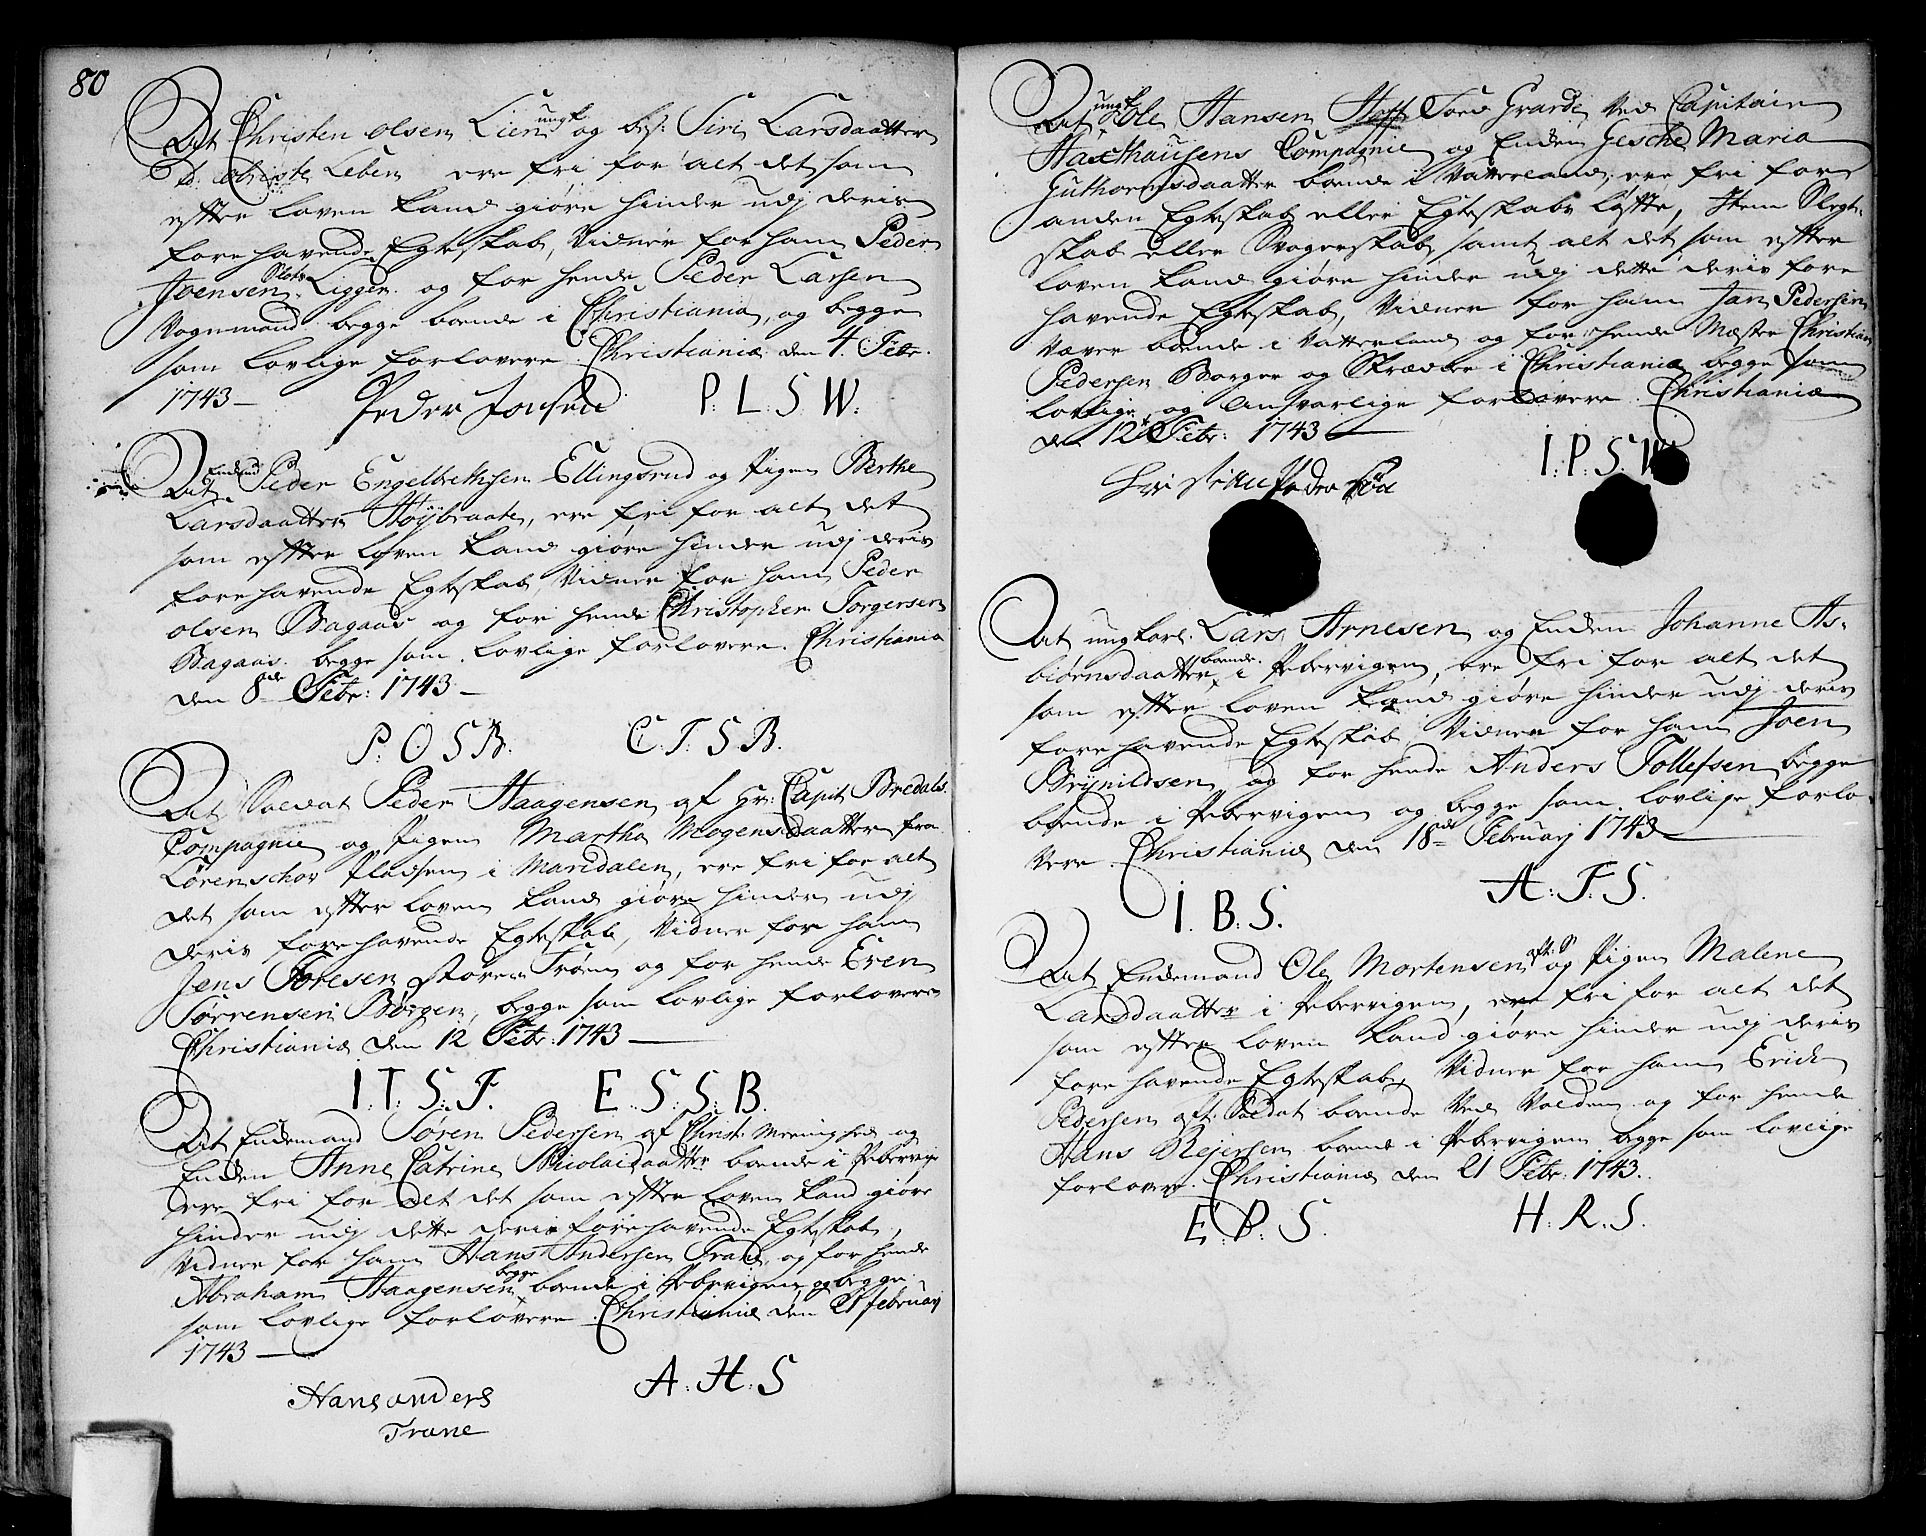 80
At Christen Olsen Lien ungk og bes: Siri Larsdaatter
ere fri for alt det som
efter loven kand giøre hinder udj deris
forehavende Egteskab, Vidner for ham Peder
Joensen Slots Ligger og for hende Peder Larsen
Vognmand begge boende i Christiania, og begge
som lovlige forlovere. Christiania den 4. Febr.
1743
Peder Jonsen P. L. S. W.
At Enkem Peder Engelbrethsen Ellingsrud og Pigen Berthe
Larsdaatter Høybraate, ere fri for alt det
som efter loven kand giøre hinder udj deris
forehavende Egteskab, Vidner for ham Peder
olsen Bagaas og for hende Christopher Torgersen
Bagaas. begge som lovlige forlovere. Christiania
den 8de Febr: 1743
P. O. S. B. C. T. S. B.
At Soldat Peder Haagensen af Hr: Capit Bredals
Compagnie og Pigen Martha Mogensdaatter fra
Lørenschov Pladsen i Maridalen, ere fri for alt
det som efter loven kand giøre hinder udj
deris forehavende Egteskab, Vidner for ham
Jens Toresen store Frøen og for hende Even
Sørrensen Børgen, begge som lovlige forlovere
Christiania den 12 Febr: 1743
I. T. S. F. E. S. S. B.
At Enkemand Søren Pedersen af Christ: Meenighed og
Enken Anne Catrine Nicolaidaatter boende i Pebervig
ere fri for alt det som efter loven kand giøre
hinder udj dette deris forehavende Egteskab,
Vidner for ham Hans Andersen Trane, og for hende
Abraham Haagensen begge boende i Pebervigen og begge
som lovlige forlovere. Christiania den 21 februarj
1743
Hans anders A. H. S
Trane
At ungk Ole Hansen Hoff Soed Grarde Ved Capitain
Haxthausens Compagnie og Enken Gesche Maria
Guthormsdaatter boende i Vatterland, ere fri for
anden Egteskab eller Egteskabs løfte, Item Slegt-
skab eller Svogerskab samt alt det som efter
loven kand giøre hinder udj dette deris fore
havende Egteskab, Vidner for ham Jan Pedersen
Væver boende i Vatterland og for hende Mester Christian
Pedersen Borger og Skræder i Christiania begge som
lovlige og Ansvarlige forlovere. Christiania
den 12 Febr: 1743
I. P. S. W
At ungkarl Lars Arnesen og Enken Johanne As-
biørnsdaatter boende i Pebervigen, ere fri for alt det
som efter loven kand giøre hinder udj deris
forehavende Egteskab, Vidner for ham Joen
Brynildsen og for hende Anders Tollefsen begge
boende i Pebervigen og begge som lovlige forlo-
vere. Christiania den 18de Februarj 1743
I. B. S. A. T. S.
At Enkemand Ole Mortensen aft: S og Pigen Malene
Larsdaatter i Pebervigen, ere fri for alt det
som efter loven kand giøre hinder udj deris
forehavende Egteskab, Vidner for ham Erich
Pedersen aft: Soldat boende Ved Volden og for hende
Hans Rejersen boende i Pebervigen begge som lovlige
forlovere. Christiania den 21 Febr: 1743.
E. P. S. H. R. S.